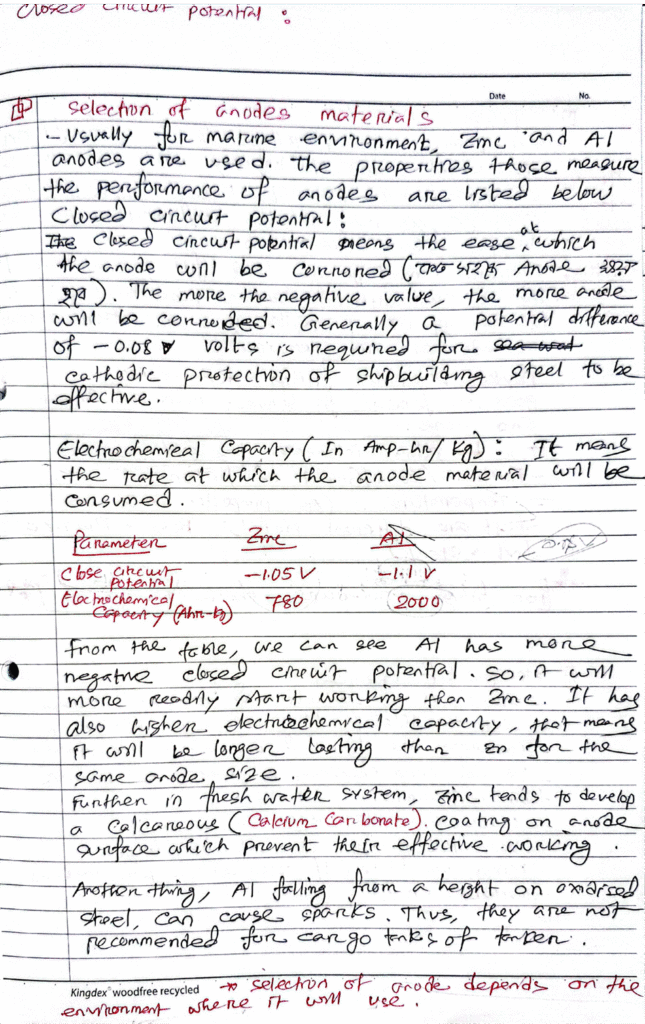 Closed circuit potential :
Date No.
Selection of anodes materials
- Usually for marine environment, Zinc and Al
anodes are used. The properties those measure
the performance of anodes are listed below
Closed circuit potential :
Closed circuit potential means the ease at which
the anode will be corroded ( Anode ). The more the negative value, the more anode
will be corroded. Generally a potential difference
of -0.08 volts is required for sea wat
cathodic protection of shipbuilding steel to be
effective.
Electrochemical Capacity (In Amp-hr/Kg) : It means
the rate at which the anode material will be
consumed.
Parameter Zinc Al
Close circuit Potential -1.05 V -1.1 V
Electrochemical Capacity (Ahr-kg) 780 2000
From the table, we can see Al has more
negative closed circuit potential. So, it will
more readily start working than Zinc. It has
also higher electrochemical capacity, that means
it will be longer lasting than zn for the
same anode size.
Further in fresh water system, Zinc tends to develop
a calcareous (Calcium Carbonate). coating on anode
surface which prevent their effective working.
Another thing, Al falling from a height on oxidised
steel, can cause sparks. Thus, they are not
recommended for cargo tanks of tanker.
Kingdex woodfree recycled
→ selection of anode depends on the
environment where it will use.